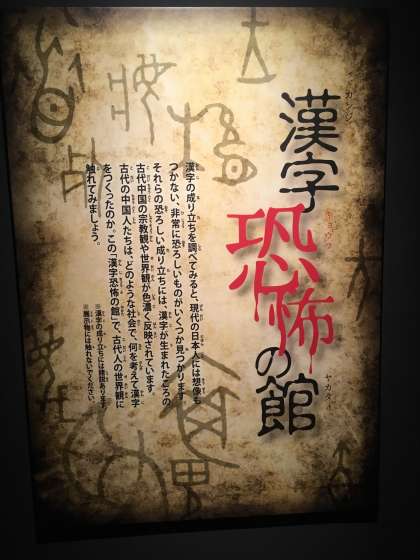 漢字恐怖の館
カンジ
キョウフ
ヤカタ
漢字の成り立ちを調べてみると、現代の日本人には想像も
つかない、非常に恐ろしいものがいくつか見つかります。
それらの恐ろしい成り立ちには、漢字が生まれたころの
古代中国の宗教観や世界観が色濃く反映されています。
古代の中国人たちは、どのような社会で、何を考えて漢字
をつくったのか。この「漢字恐怖の館」で、古代人の世界観に
触れてみましょう。
※漢字の成り立ちには諸説あります。
※展示物には触れないでください。